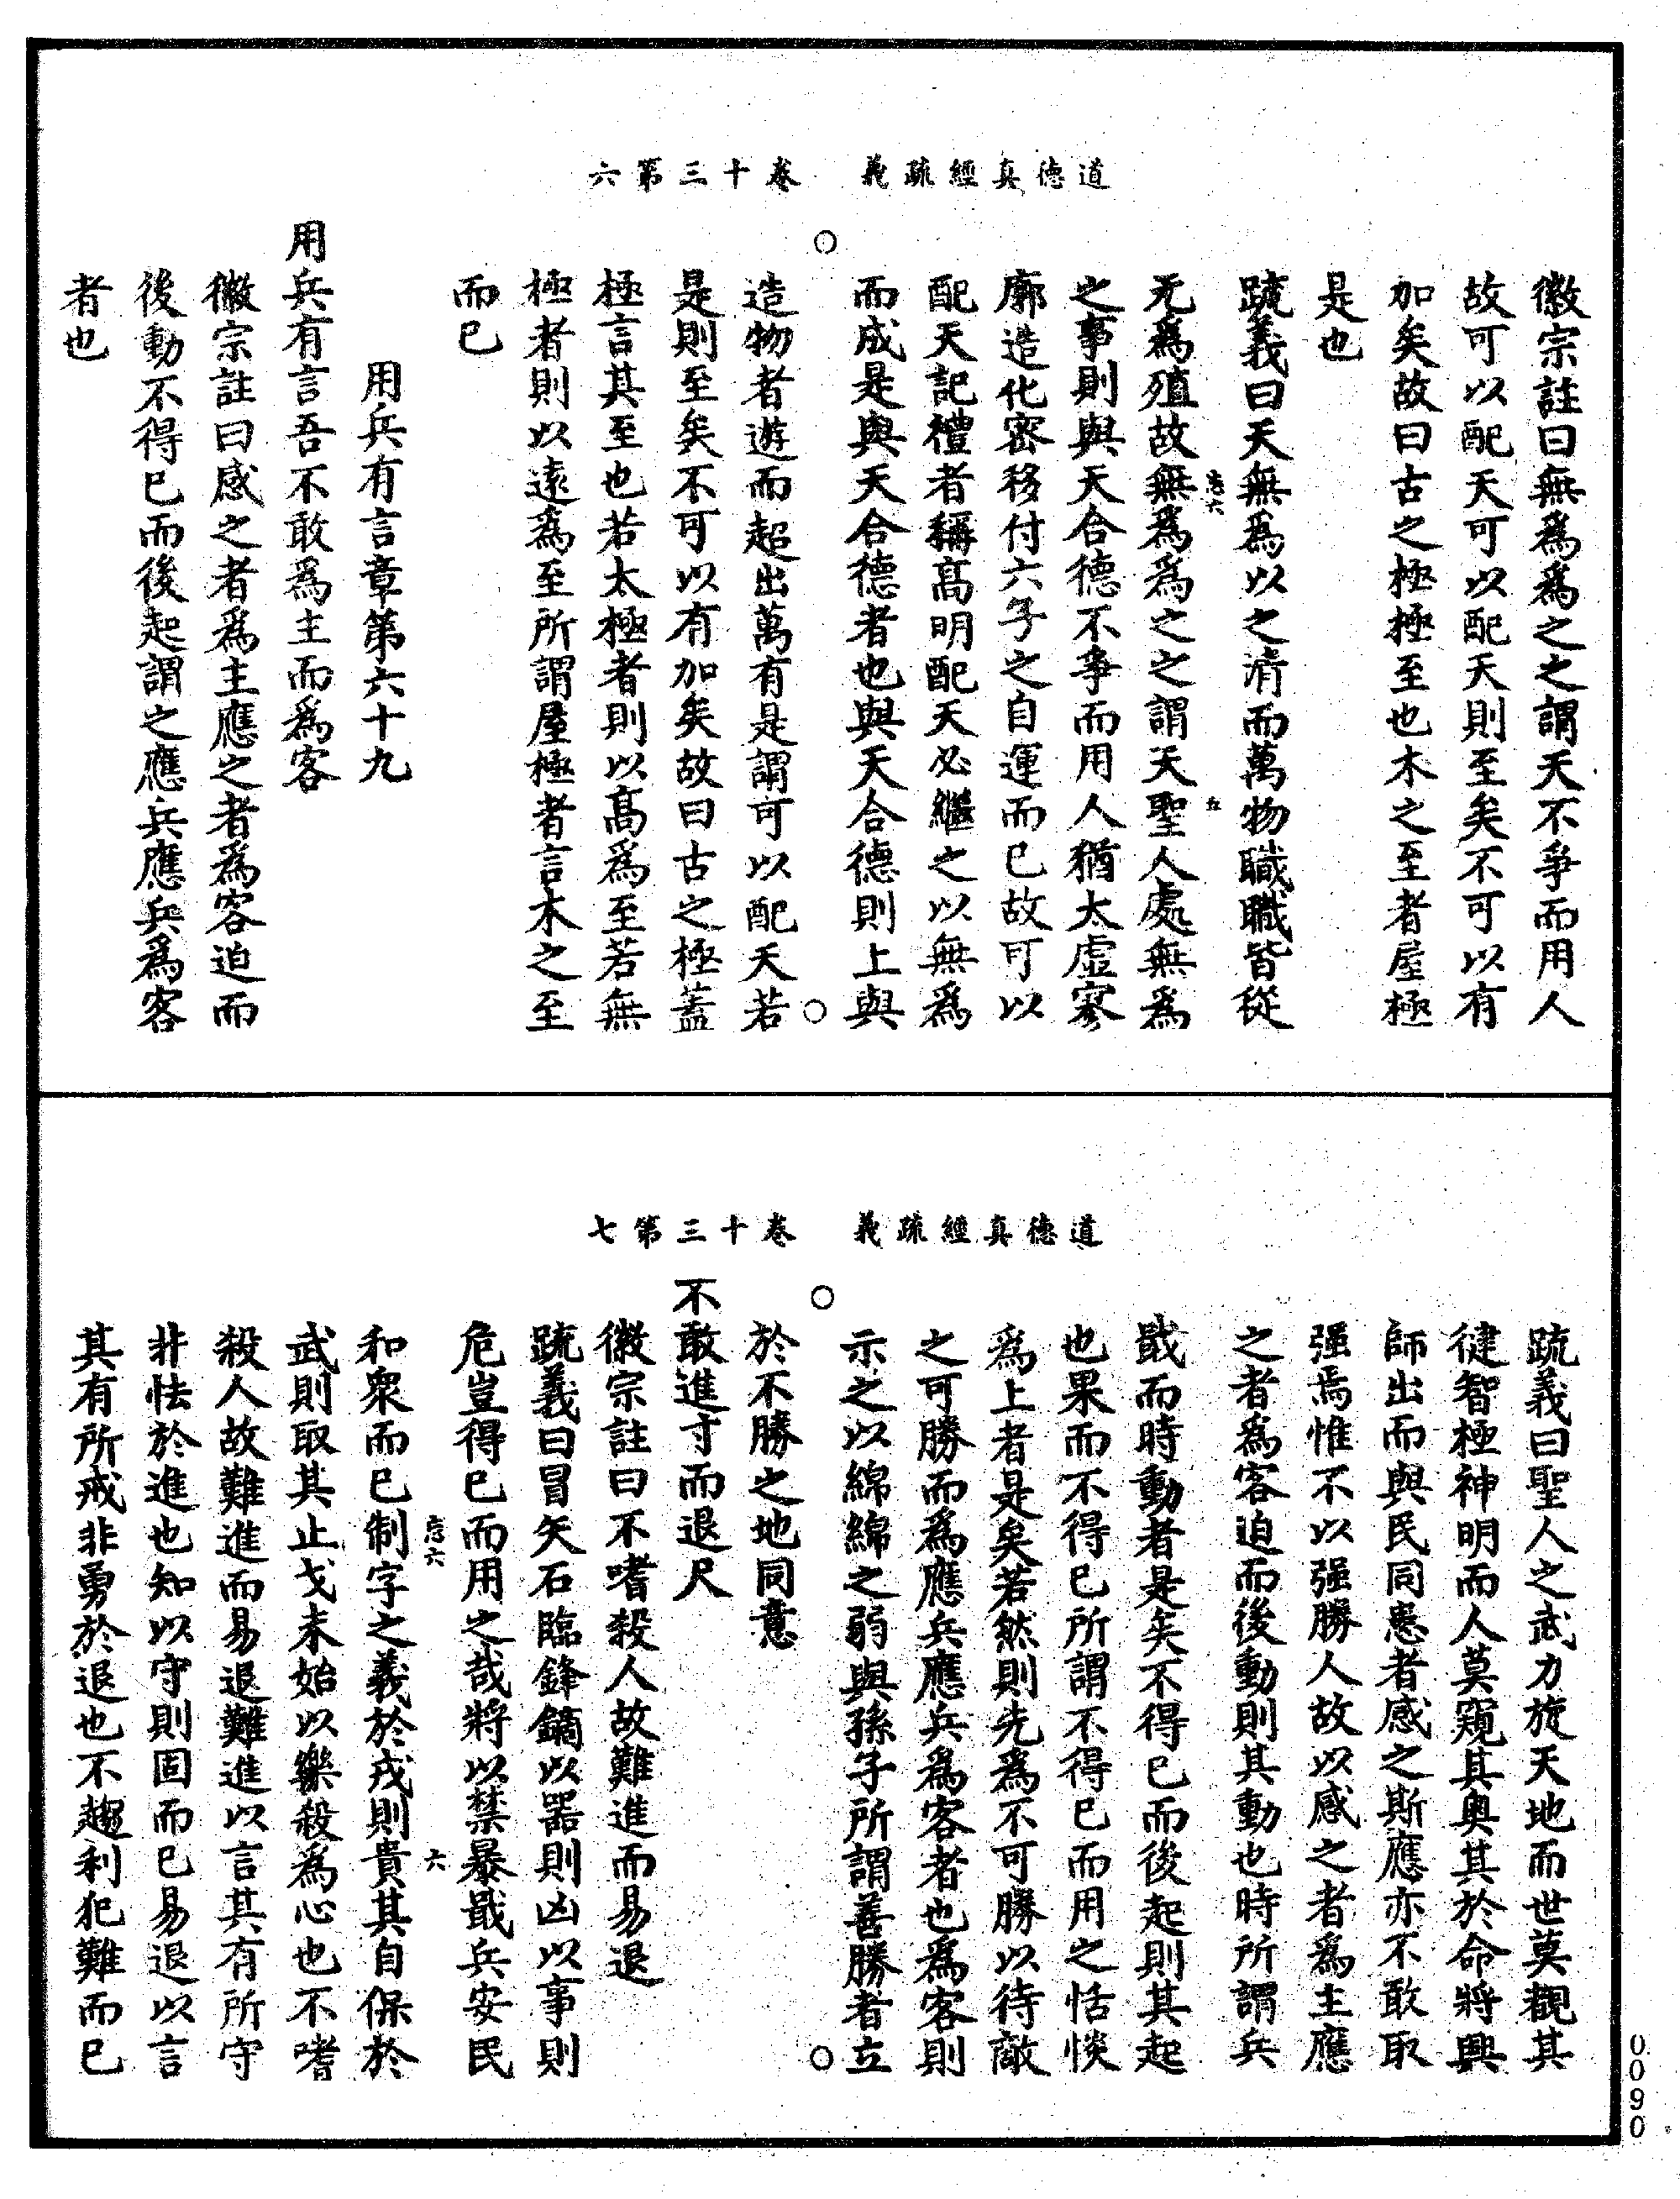 道德真經疏義　卷十三第六
徽宗註曰無爲爲之之謂天不爭而用人
故可以配天可以配天則至矣不可以有
加矣故曰古之極極至也木之至者屋極
是也
䟽義曰天無爲以之清而萬物職職皆從
无爲殖故無爲爲之之謂天聖人處無爲
之事則與天合德不爭而用人猶太虛寥
廓造化密移付六子之自運而已故可以
配天記禮者稱髙明配天必繼之以無爲
而成是與天合德者也與天合德則上與
造物者遊而超出萬有是謂可以配天若
是則至矣不可以有加矣故曰古之極蓋
極言其至也若太極者則以髙爲至若無
極者則以遠爲至所謂屋極者言木之至
而已
用兵有言章第六十九
用兵有言吾不敢爲主而爲客
徽宗註曰感之者爲主應之者爲客迫而
後動不得已而後起謂之應兵應兵爲客
者也
道德真經疏義　卷十三第七
䟽義曰聖人之武力旋天地而世莫覩其
健智極神明而人莫窺其奥其於命將興
師出而與民同患者感之斯應亦不敢取
强焉惟不以强勝人故以感之者爲主應
之者爲客迫而後動則其動也時所謂兵
戢而時動者是矣不得已而後起則其起
也果而不得已所謂不得已而用之恬惔
爲上者是矣若然則先爲不可勝以待敵
之可勝而爲應兵應兵爲客者也爲客則
示之以綿綿之弱與孫子所謂善勝者立
於不勝之地同意
不敢進寸而退尺
徽宗註曰不嗜殺人故難進而易退
䟽義曰冒矢石臨鋒鏑以器則凶以事則
危豈得已而用之哉將以禁暴戢兵安民
和衆而已制字之義於戎則貴其自保於
武則取其止戈未始以樂殺爲心也不嗜
殺人故難進而易退難進以言其有所守
非怯於進也知以守則固而已易退以言
其有所戒非勇於退也不趨利犯難而已
0090